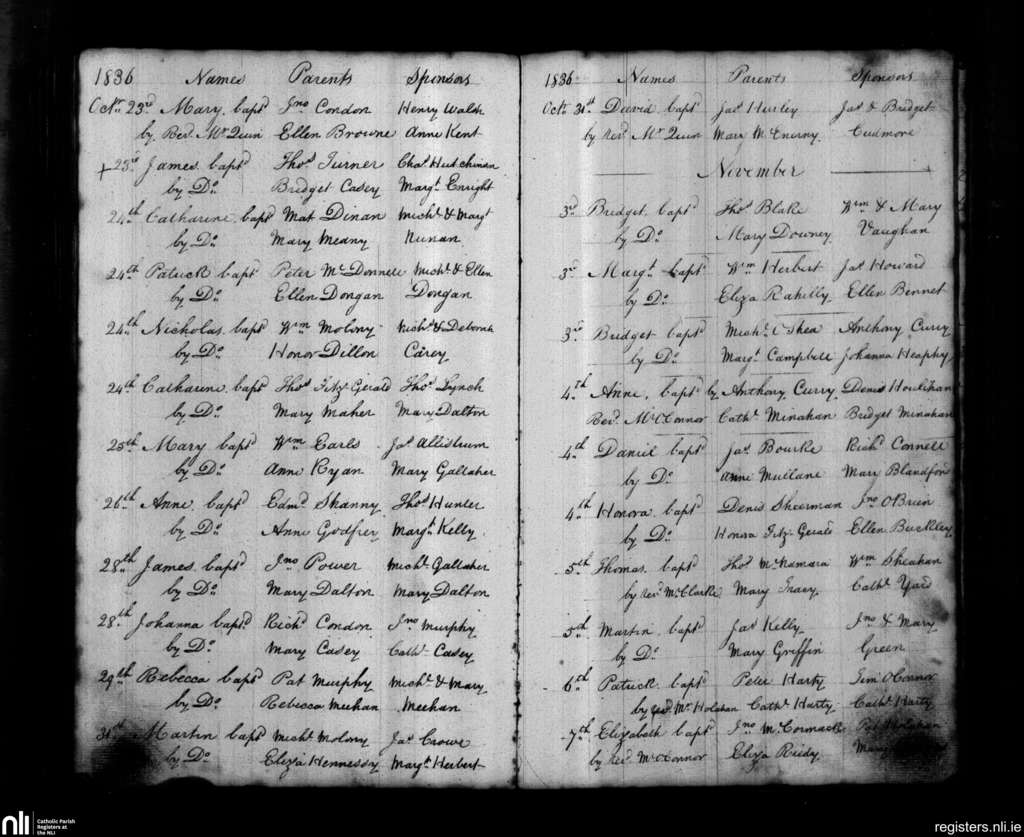 1836 Names Parents Sponsors
Octr 23rd Mary baptd Jno Condon Henry Walsh
by Revd Mr Quin Ellen Browne Anne Kent
+ 23rd James baptd Thos Turner Chas Hutchinan
by Do Bridget Casey Margt Enright
24th Catharine baptd Mat Dinan Michl & Margt
by Do Mary Meany Nunan
24th Patrick baptd Peter McDonnell Michl & Ellen
by Do Ellen Dongan Dongan
24th Nicholas baptd Wm Molony Richd & Deborah
by Do Honor Dillon Carey
24th Catharine baptd Thos Fitz Gerald Thos Lynch
by Do Mary Maher Mary Dalton
25th Mary baptd Wm Earls Jas Allistrum
by Do Anne Ryan Mary Gallaher
26th Anne baptd Edmd Shanny Thos Hunter
by Do Anne Godfrey Margt Kelly
28th James baptd Jno Power Michl Gallaher
by Do Mary Dalton Mary Dalton
28th Johanna baptd Richd Condon Jno Murphy
by Do Mary Casey Cathe Casey
29th Rebecca baptd Pat Murphy Michl & Mary
by Do Rebecca Meehan Meehan
31st Martin baptd Michl Molony Jas Crowe
by Do Eliza Hennessy Margt Herbert
1836 Names Parents Sponsors
Octr 31st David baptd Jas Hurley Jas & Bridget
by Revd Mr Quin Mary McEnirny Cudmore
November
3rd Bridget baptd Thos Blake Wm & Mary
by Do Mary Downey Vaughan
3rd Margt baptd Wm Herbert Jas Howard
by Do Eliza Rahilly Ellen Bennet
3rd Bridget baptd Michl O'Shea Anthony Curry
by Do Margt Campbell Johanna Heaphy
4th Anne baptd by Anthony Curry Denis Houlihan
Revd Mr O'Connor Cathe Minahan Bridget Minahan
4th Daniel baptd Jas Bourke Richd Connell
by Do Anne Mullane Mary Blandford
4th Honora baptd Denis Sheerman Jno O'Brien
by Do Honora Fitz Gerald Ellen Buckley
5th Thomas baptd Thos McNamara Wm Sheahan
by Revd Mr Clarke Mary Tracy Cathe Yard
5th Martin baptd Jas Kelly Jno & Mary
by Do Mary Griffin Green
6th Patrick baptd Peter Harty Jim O'Connor
by Revd Mr Holahan Cathe Harty Cathe Harty
7th Elizabeth baptd Jno McCormack Pat
by Revd Mr O'Connor Eliza Reidy Mary
nli Catholic Parish
Registers at
the NLI
registers.nli.ie